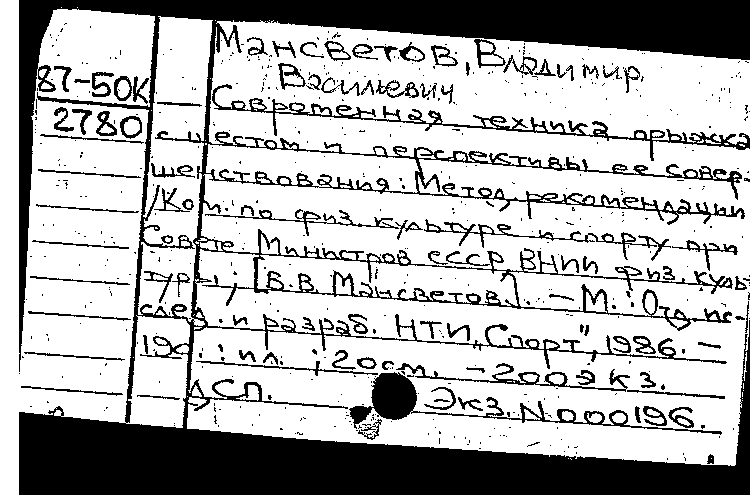 Мансветов, Владимир
Васильевич
87-50К
2780
Современная техника прыжка
с шестом и перспективы ее совер-
шенствования: Метод. рекомендации
/Ком. по физ. культуре и спорту при
Совете Министров СССР, ВНИИ физ. куль-
туры; [В.В. Мансветов]. — М.: Отд. ис-
след. и разраб. НТИ „Спорт", 1986. —
19с.: ил.; 20см. — 200экз.
ДСП. Экз. N000196.